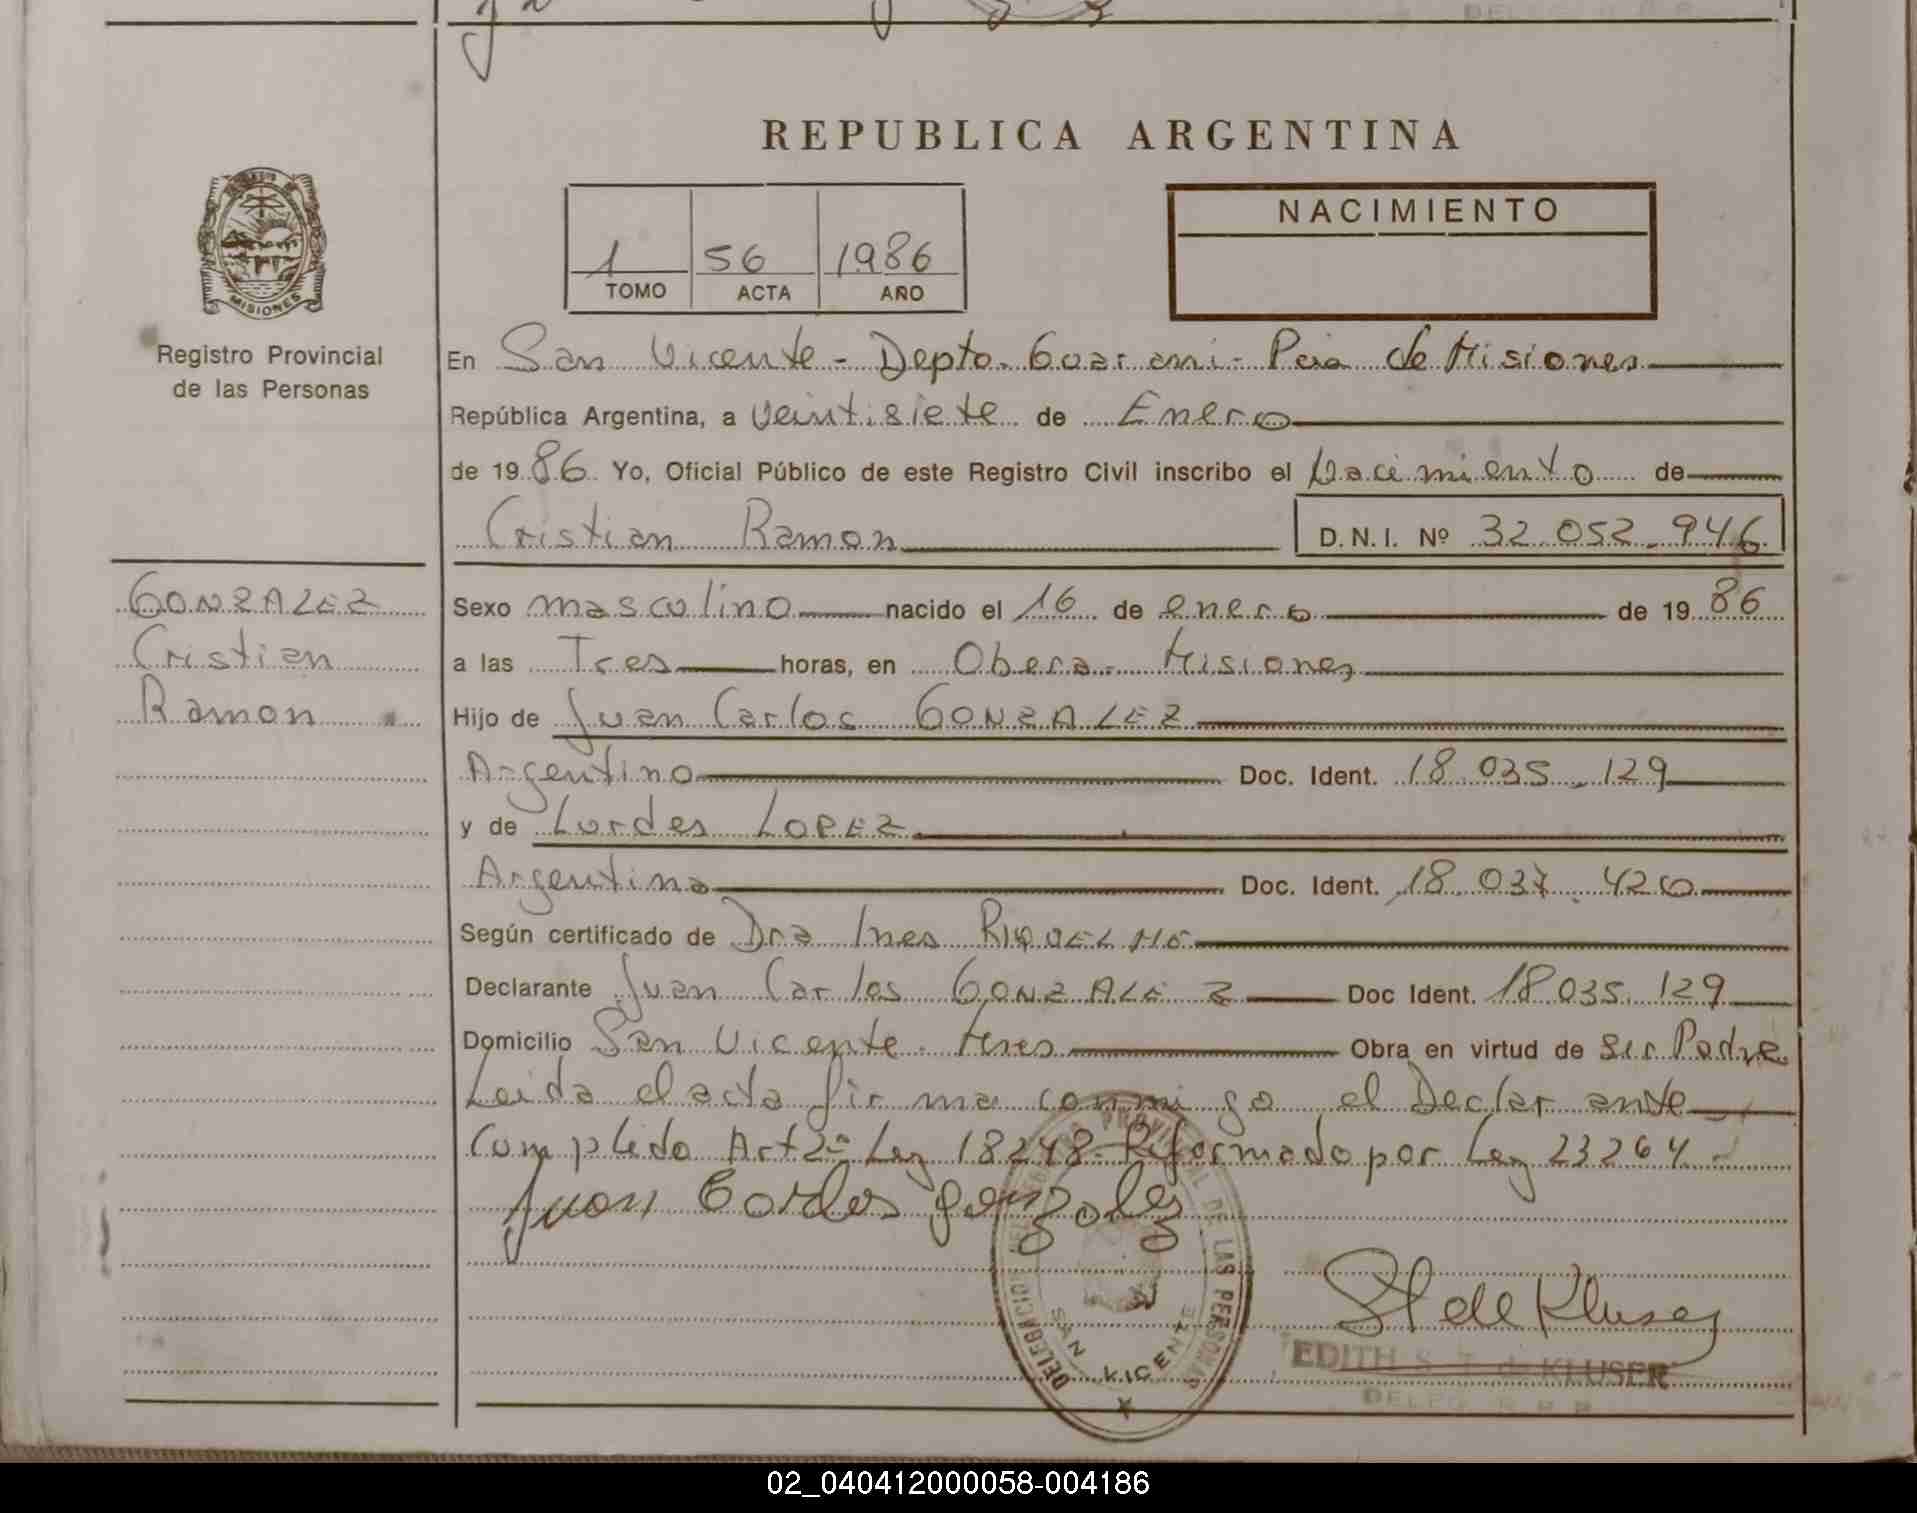 REPUBLICA ARGENTINA
MISIONES
Registro Provincial
de las Personas
1 56 1986
TOMO ACTA AÑO
NACIMIENTO
En San Vicente - Depto. Guarani - Pcia de Misiones
República Argentina, a veintisiete de Enero
de 1986 Yo, Oficial Público de este Registro Civil inscribo el Nacimiento de
Cristian Ramon D.N.I. Nº 32.052.946
GONZALEZ
Cristian
Ramon
Sexo masculino nacido el 16 de enero de 1986
a las Tres horas, en Obera - Misiones
Hijo de Juan Carlos GONZALEZ
Argentino Doc. Ident. 18.035.129
y de Lurdes LOPEZ
Argentina Doc. Ident. 18.037.420
Según certificado de Dra Ines RIQUELME
Declarante Juan Carlos GONZALEZ Doc Ident. 18.035.129
Domicilio San Vicente - Mnes Obra en virtud de Ser Padre
Leida el acta firma conmigo el Declarante
Cumplido Art 2º Ley 18248 - Reformado por Ley 23264 -
Juan Carlos Gonzalez
DELEGACION PROVINCIAL DE LAS PERSONAS
SAN VICENTE
St de Kluser
EDITH S. T. de KLUSER
02_040412000058-004186